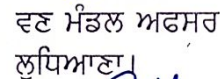 ਵਣ ਮੰਡਲ ਅਫਸਰ
ਲੁਧਿਆਣਾ।